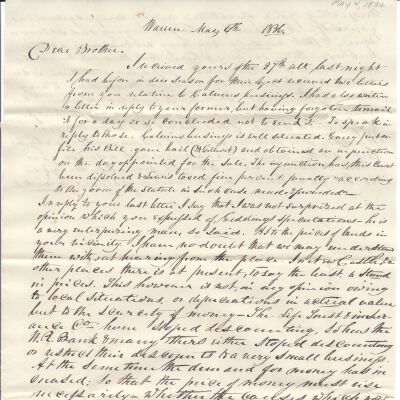 MAY 4, 1836
Warren May 4th 1836
Dear Brother.
I received yours of the 27th ult. last night
I had before in due season for those days received two letters
from you relative to Calvins business. I had also written
a letter in reply to your former, but having forgotten to mail
it for a day or so concluded not to send it. To speak in
reply to those. Calvins business is well situated.
file his Bill, your bail (& Gilbert) and obtained an injunction
on the day appointed for the Sale. The injunction has this Court
been dissolved & Lewis taxed five per cent penalty according
to the of the Statute in such case made & provided
In reply to your last letter I say that I was not surprised at the
opinion which you expressed of Giddings speculations — he is
a very enterprizing man, so said. As to the prices of lands in
your vicinity. I have no doubt that we may understand
them without hearing from the place. In New Castle, & in
other places there is at present, to say the least a stand
in prices. This however is not, in my opinion owing
to local situations, or depreciations in actual value
but to the scarcity of money — The Life Trust & Insur-
ance Co. have stoped discounting, so has the
W.R. Bank & many others either stoped discounting
or restrict their discounts to a very small business.
At the same time the demand for money has in
creased; so that the price of money must rise
necessarily — Whether the causes which now